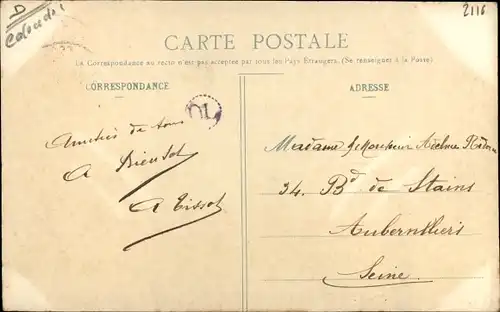 D
Calvados
2116
CARTE POSTALE
La Correspondance au recto n'est pas acceptée par tous les Pays Étrangers. (Se renseigner à la Poste)
CORRESPONDANCE
ADRESSE
Amitiés de tous
A Bientot
A Tissot
Madame & Monsieur Adelmar
34. Bd de Stains
Aubervilliers
Seine.